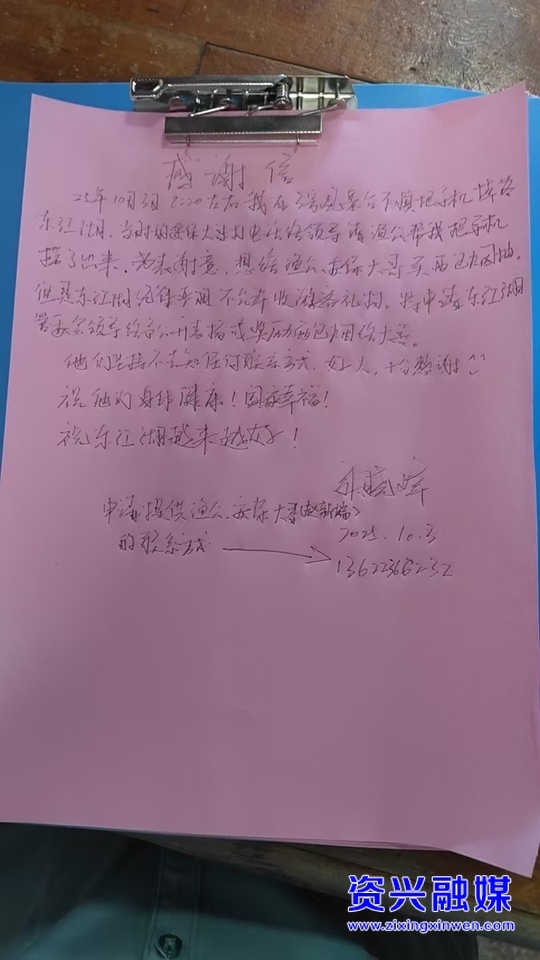 感谢信
25年10月3日 7:20左右我在 风景台不慎把手机掉落
东江湖,当时的安保大哥打电话给领导请渔公帮我把手机
捞了出来,为表谢意,想给渔公、安保大哥买两包烟抽,
但是东江湖纪律严明不允许收游客礼物,特申请东江湖
管委会领导给予公开表扬或奖励两包烟给大哥。
他们坚持不告知任何联系方式,好人,十分感谢
祝他们身体健康!阖家幸福!
祝东江湖越来越好!
申请提供渔公、安保大哥(赵新端)
2025.10.3
的联系方式
13622366232
资兴融媒
www.zixingxinwen.com